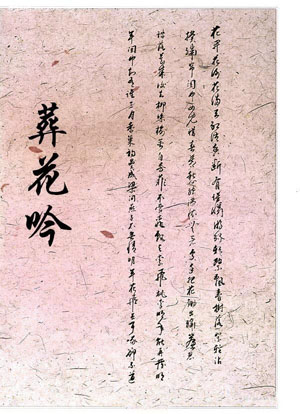 花谢花飞花满天红消香断有谁怜游丝软系飘春榭落絮轻沾
扑绣帘闺中女儿惜春暮愁绪满怀无释处手把花锄出绣帘忍
踏落花来复去柳丝榆荚自芳菲不管桃飘与李飞桃李明年能再发明
年闺中知有谁三月香巢初垒成梁间燕子太无情明年花发虽可啄却不道
葬花吟